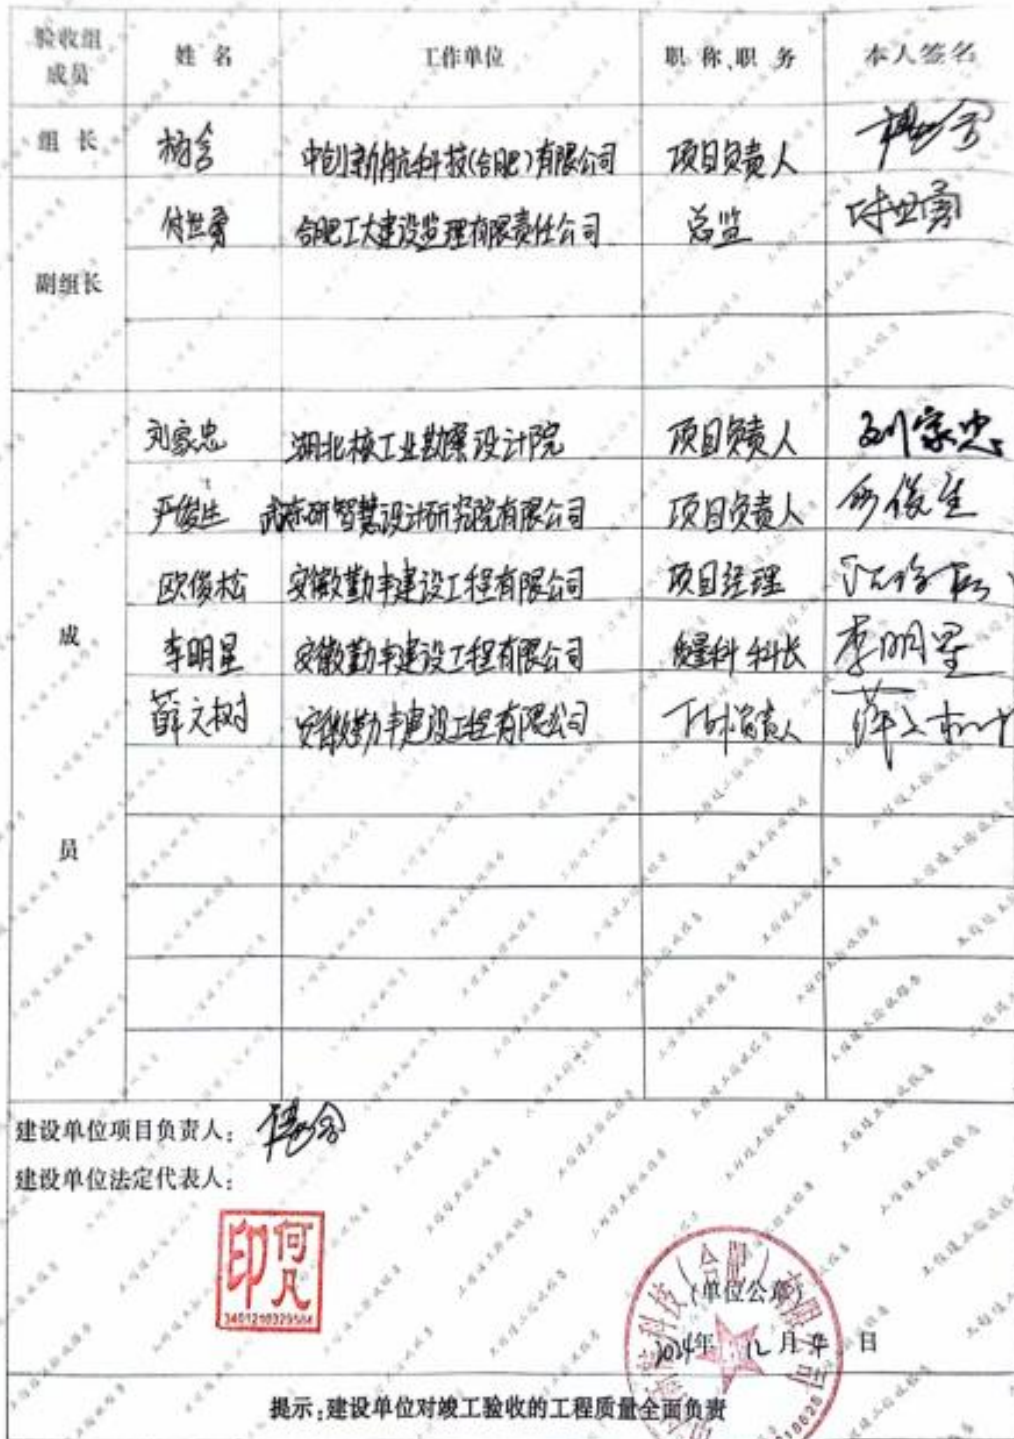 验收组成员 姓 名 工作单位 职 称、职 务 本人签名
组 长 杨含 中创新航科技(合肥)有限公司 项目负责人 杨含
副组长 付世勇 合肥工大建设监理有限责任公司 总监 付世勇
成员 刘家忠 湖北核工业勘察设计院 项目负责人 刘家忠
严俊生 研智慧设计研究院有限公司 项目负责人 严俊生
欧俊松 安徽勤丰建设工程有限公司 项目经理
李明星 安徽勤丰建设工程有限公司 质量科科长 李明星
薛文树 安徽勤丰建设工程有限公司 技术负责人 薛文树
建设单位项目负责人: 杨含
建设单位法定代表人:
何凡印
(单位公章)
2024年 12月 日
提示:建设单位对竣工验收的工程质量全面负责